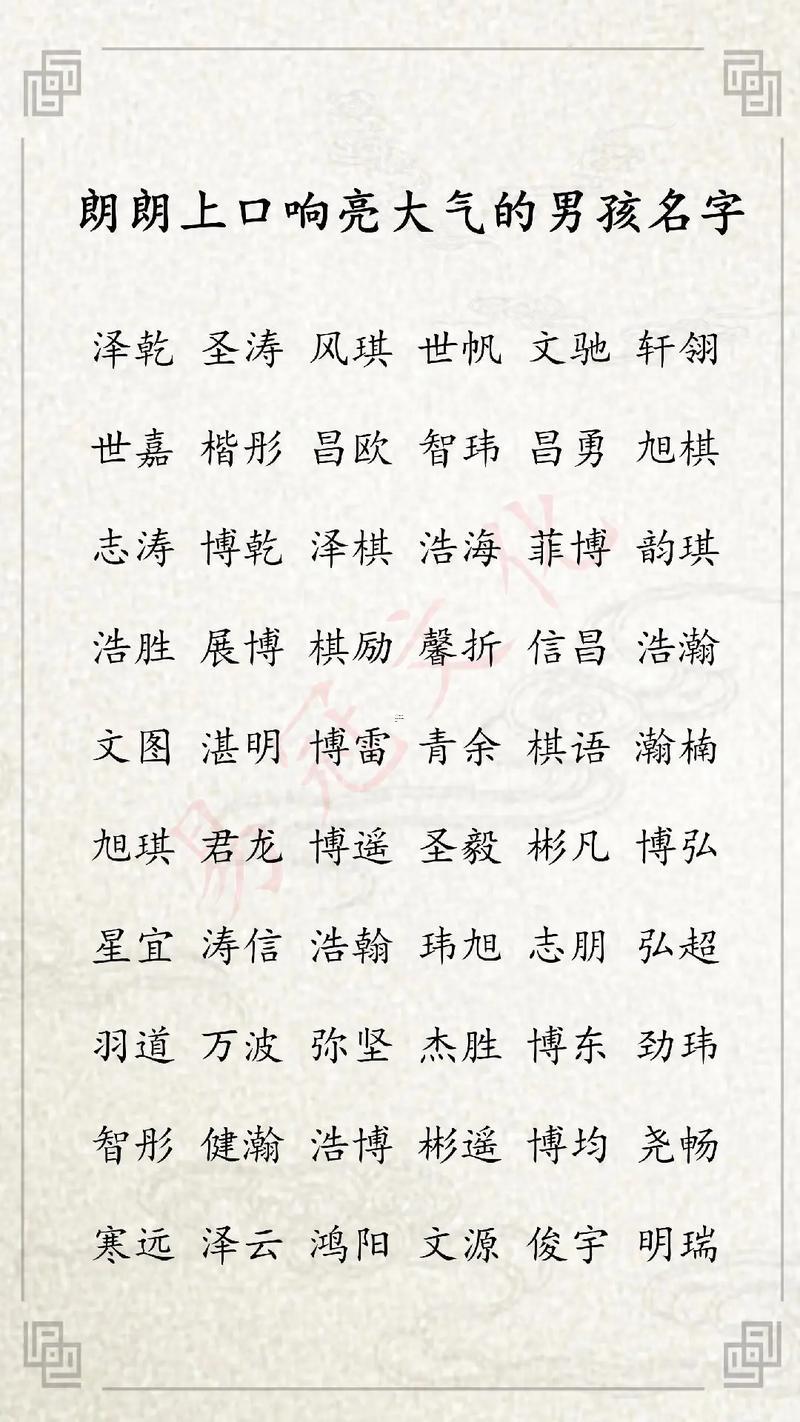 朗朗上口响亮大气的男孩名字
泽乾 圣涛 风琪 世帆 文驰 轩翎
世嘉 楷彤 昌欧 智玮 昌勇 旭棋
志涛 博乾 泽棋 浩海 菲博 韵琪
浩胜 展博 棋励 馨折 信昌 浩瀚
文图 湛明 博雷 青余 棋语 瀚楠
旭琪 君龙 博遥 圣毅 彬凡 博弘
星宜 涛信 浩翰 玮旭 志朋 弘超
羽道 万波 弥坚 杰胜 博东 劲玮
智彤 健瀚 浩博 彬遥 博均 尧畅
寒远 泽云 鸿阳 文源 俊宇 明瑞
易冠文化